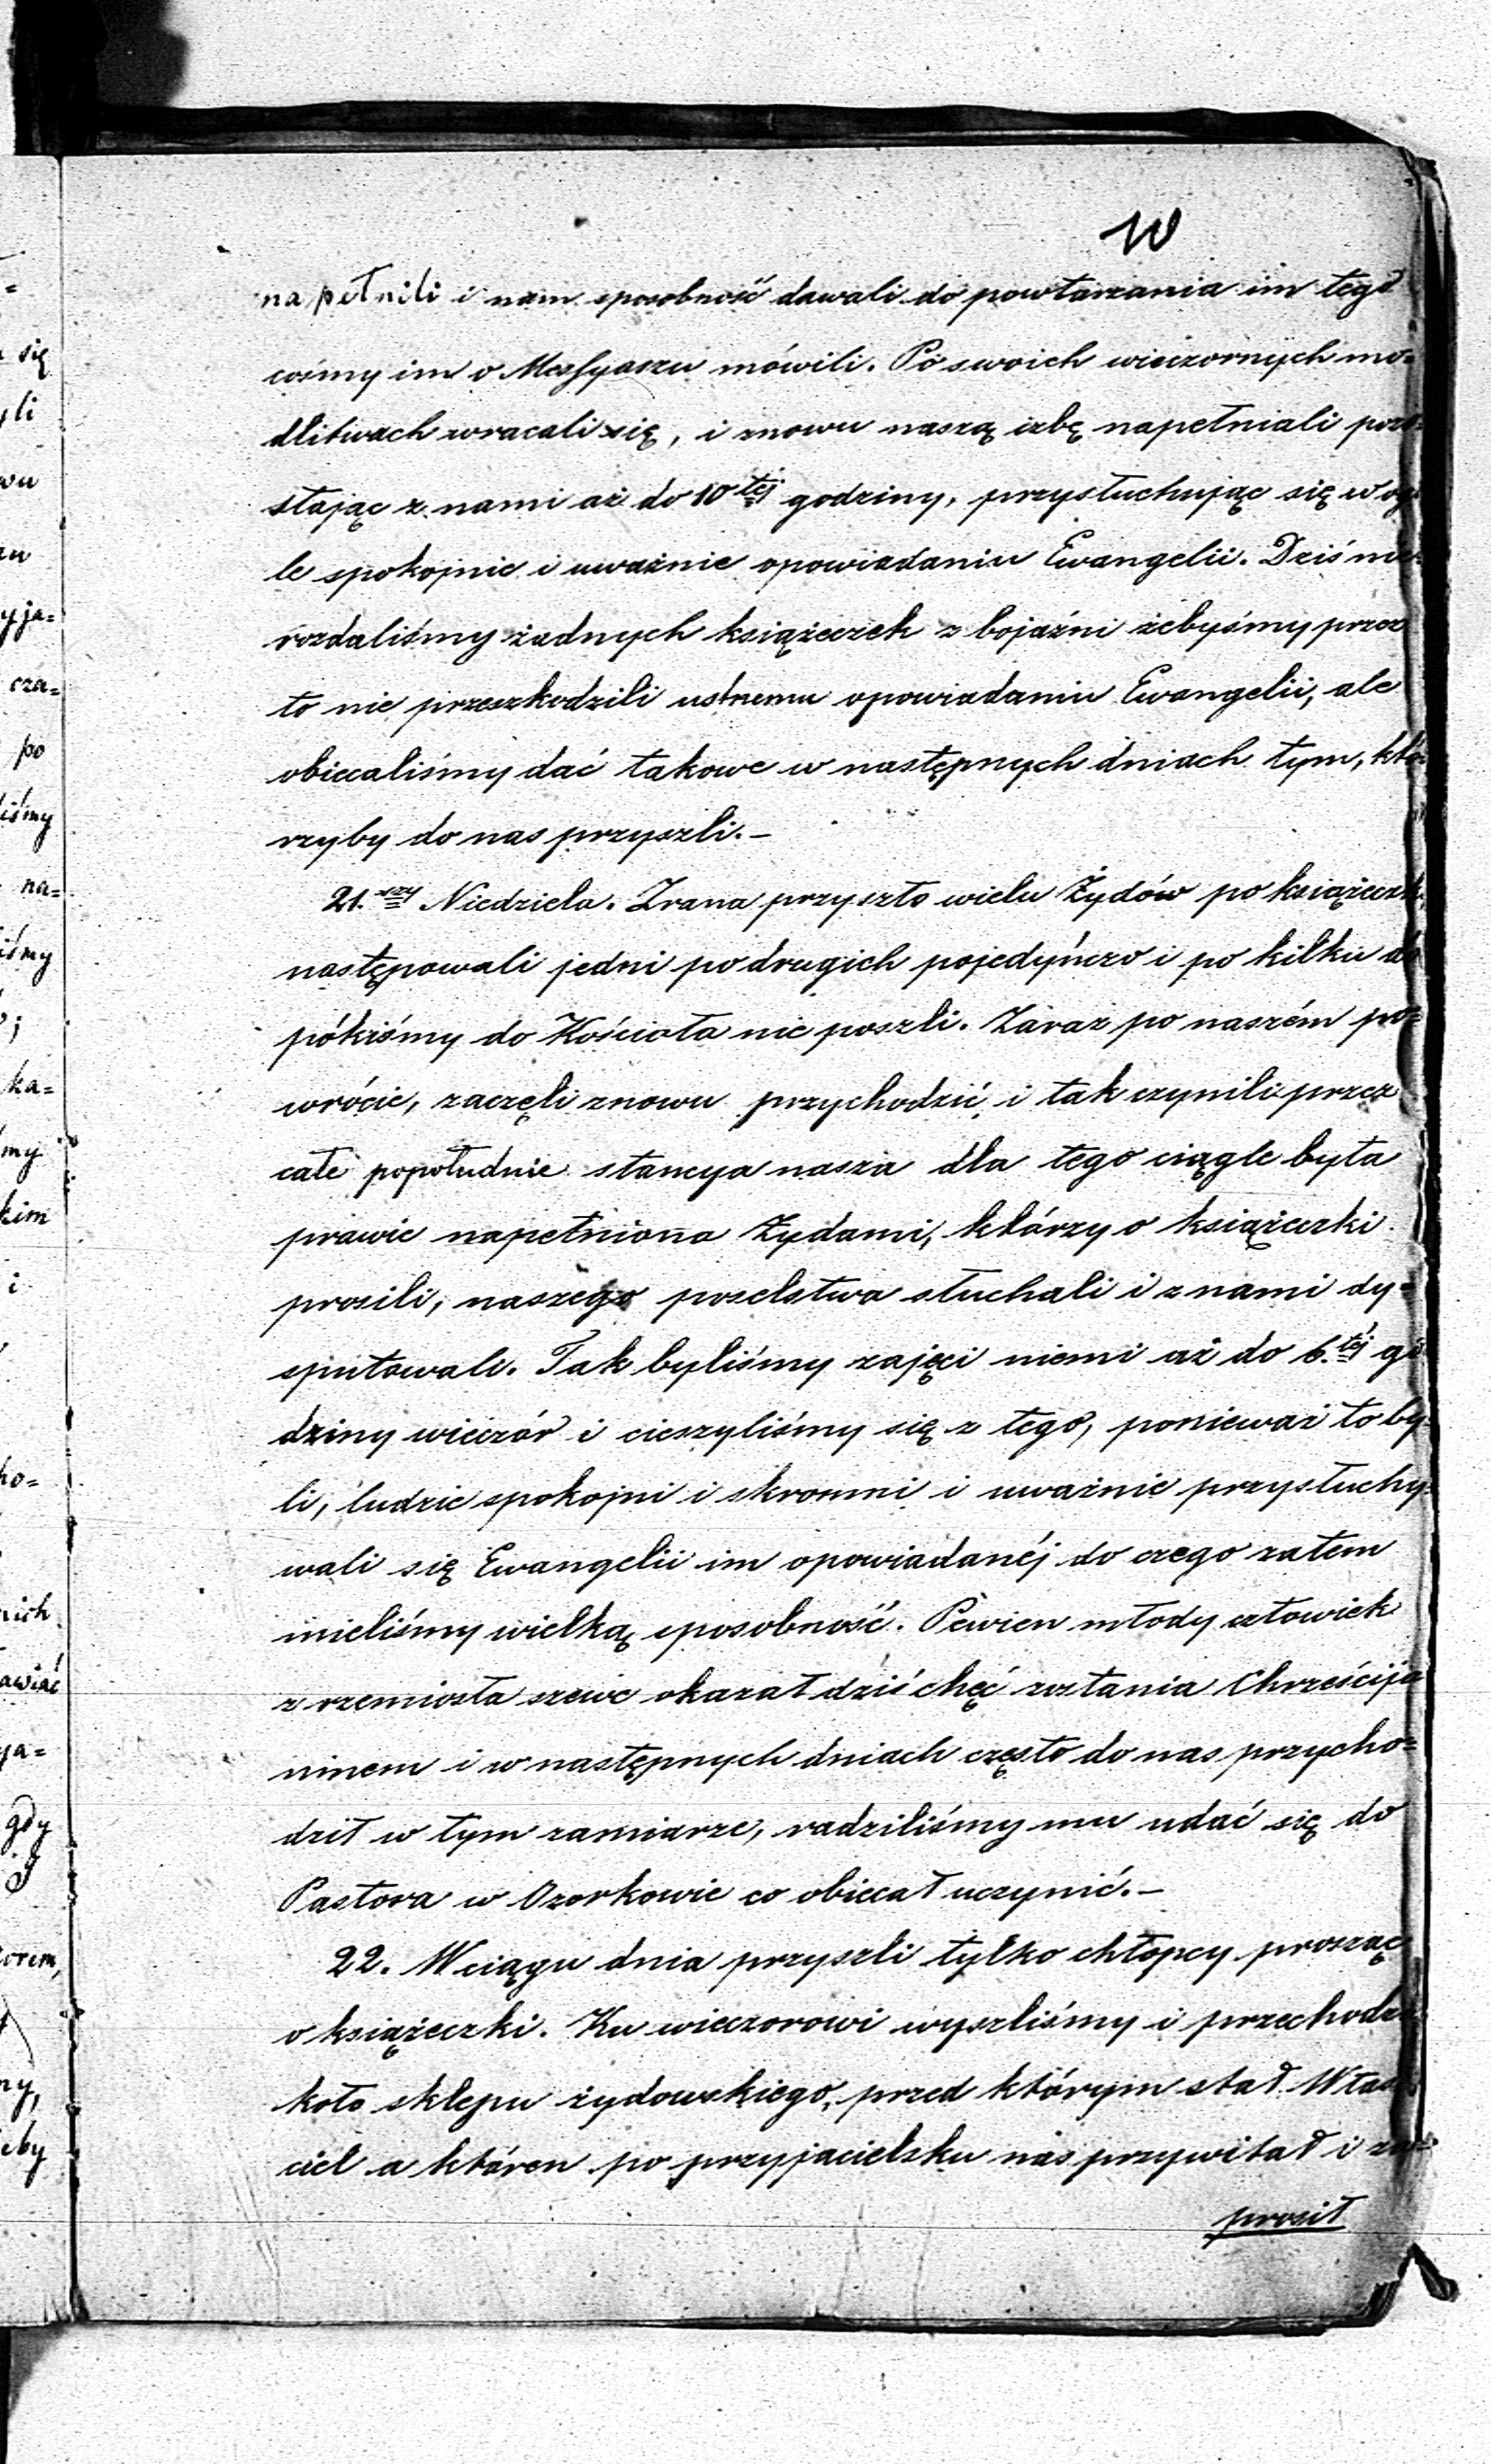 10
napełnili i nam sposobność dawali do powtarzania im tego
cośmy im o Messyaszu mówili. Po swoich wieczornych mo=
dlitwach wracali się, i znowu naszą izbę napełniali pozo=
stając z nami aż do 10tej godziny, przysłuchując się w og
le spokojnie i uważnie opowiadaniu Ewangelii. Dziś nie
rozdaliśmy żadnych książeczek z bojaźni żebyśmy przez
to nie przeszkodzili ustnemu opowiadaniu Ewangelii, ale
obiecaliśmy dać takowe w następnych dniach tym, któ=
rzyby do nas przyszli.—
21.szy Niedziela. Zrana przyszło wielu Żydów po książeczk
następowali jedni po drugich pojedyńczo i po kilku do
pókiśmy do Kościoła nie poszli. Zaraz po naszém po=
wrócie, zaczęli znowu przychodzić i tak czynili przez
całe popołudnie stancya nasza dla tego ciągle była
prawie napełniona Żydami, którzy o książeczki
prosili, naszego poselstwa słuchali i z nami dy=
sputowali. Tak byliśmy zajęci niemi aż do 6.téj go
dziny wieczór i cieszyliśmy się z tego, ponieważ to by=
li, ludzie spokojni i skromni i uważnie przysłuchy=
wali się Ewangelii im opowiadanéj do czego zatem
mieliśmy wielką sposobność. Pewien młody człowiek
z rzemiosła szewc okazał dziś chęć zostania Chrześcija
ninem i w następnych dniach często do nas przycho=
dził w tym zamiarze, radziliśmy mu udać się do
Pastora w Ozorkowie co obiecał uczynić.—
22. W ciągu dnia przyszli tylko chłopcy prosząc
o książeczki. Ku wieczorowi wyszliśmy i przechodzi
koło sklepu żydowskiego, przed którym stał Właś
ciel a któren po przyjacielsku nas przywitał i za=
prosił